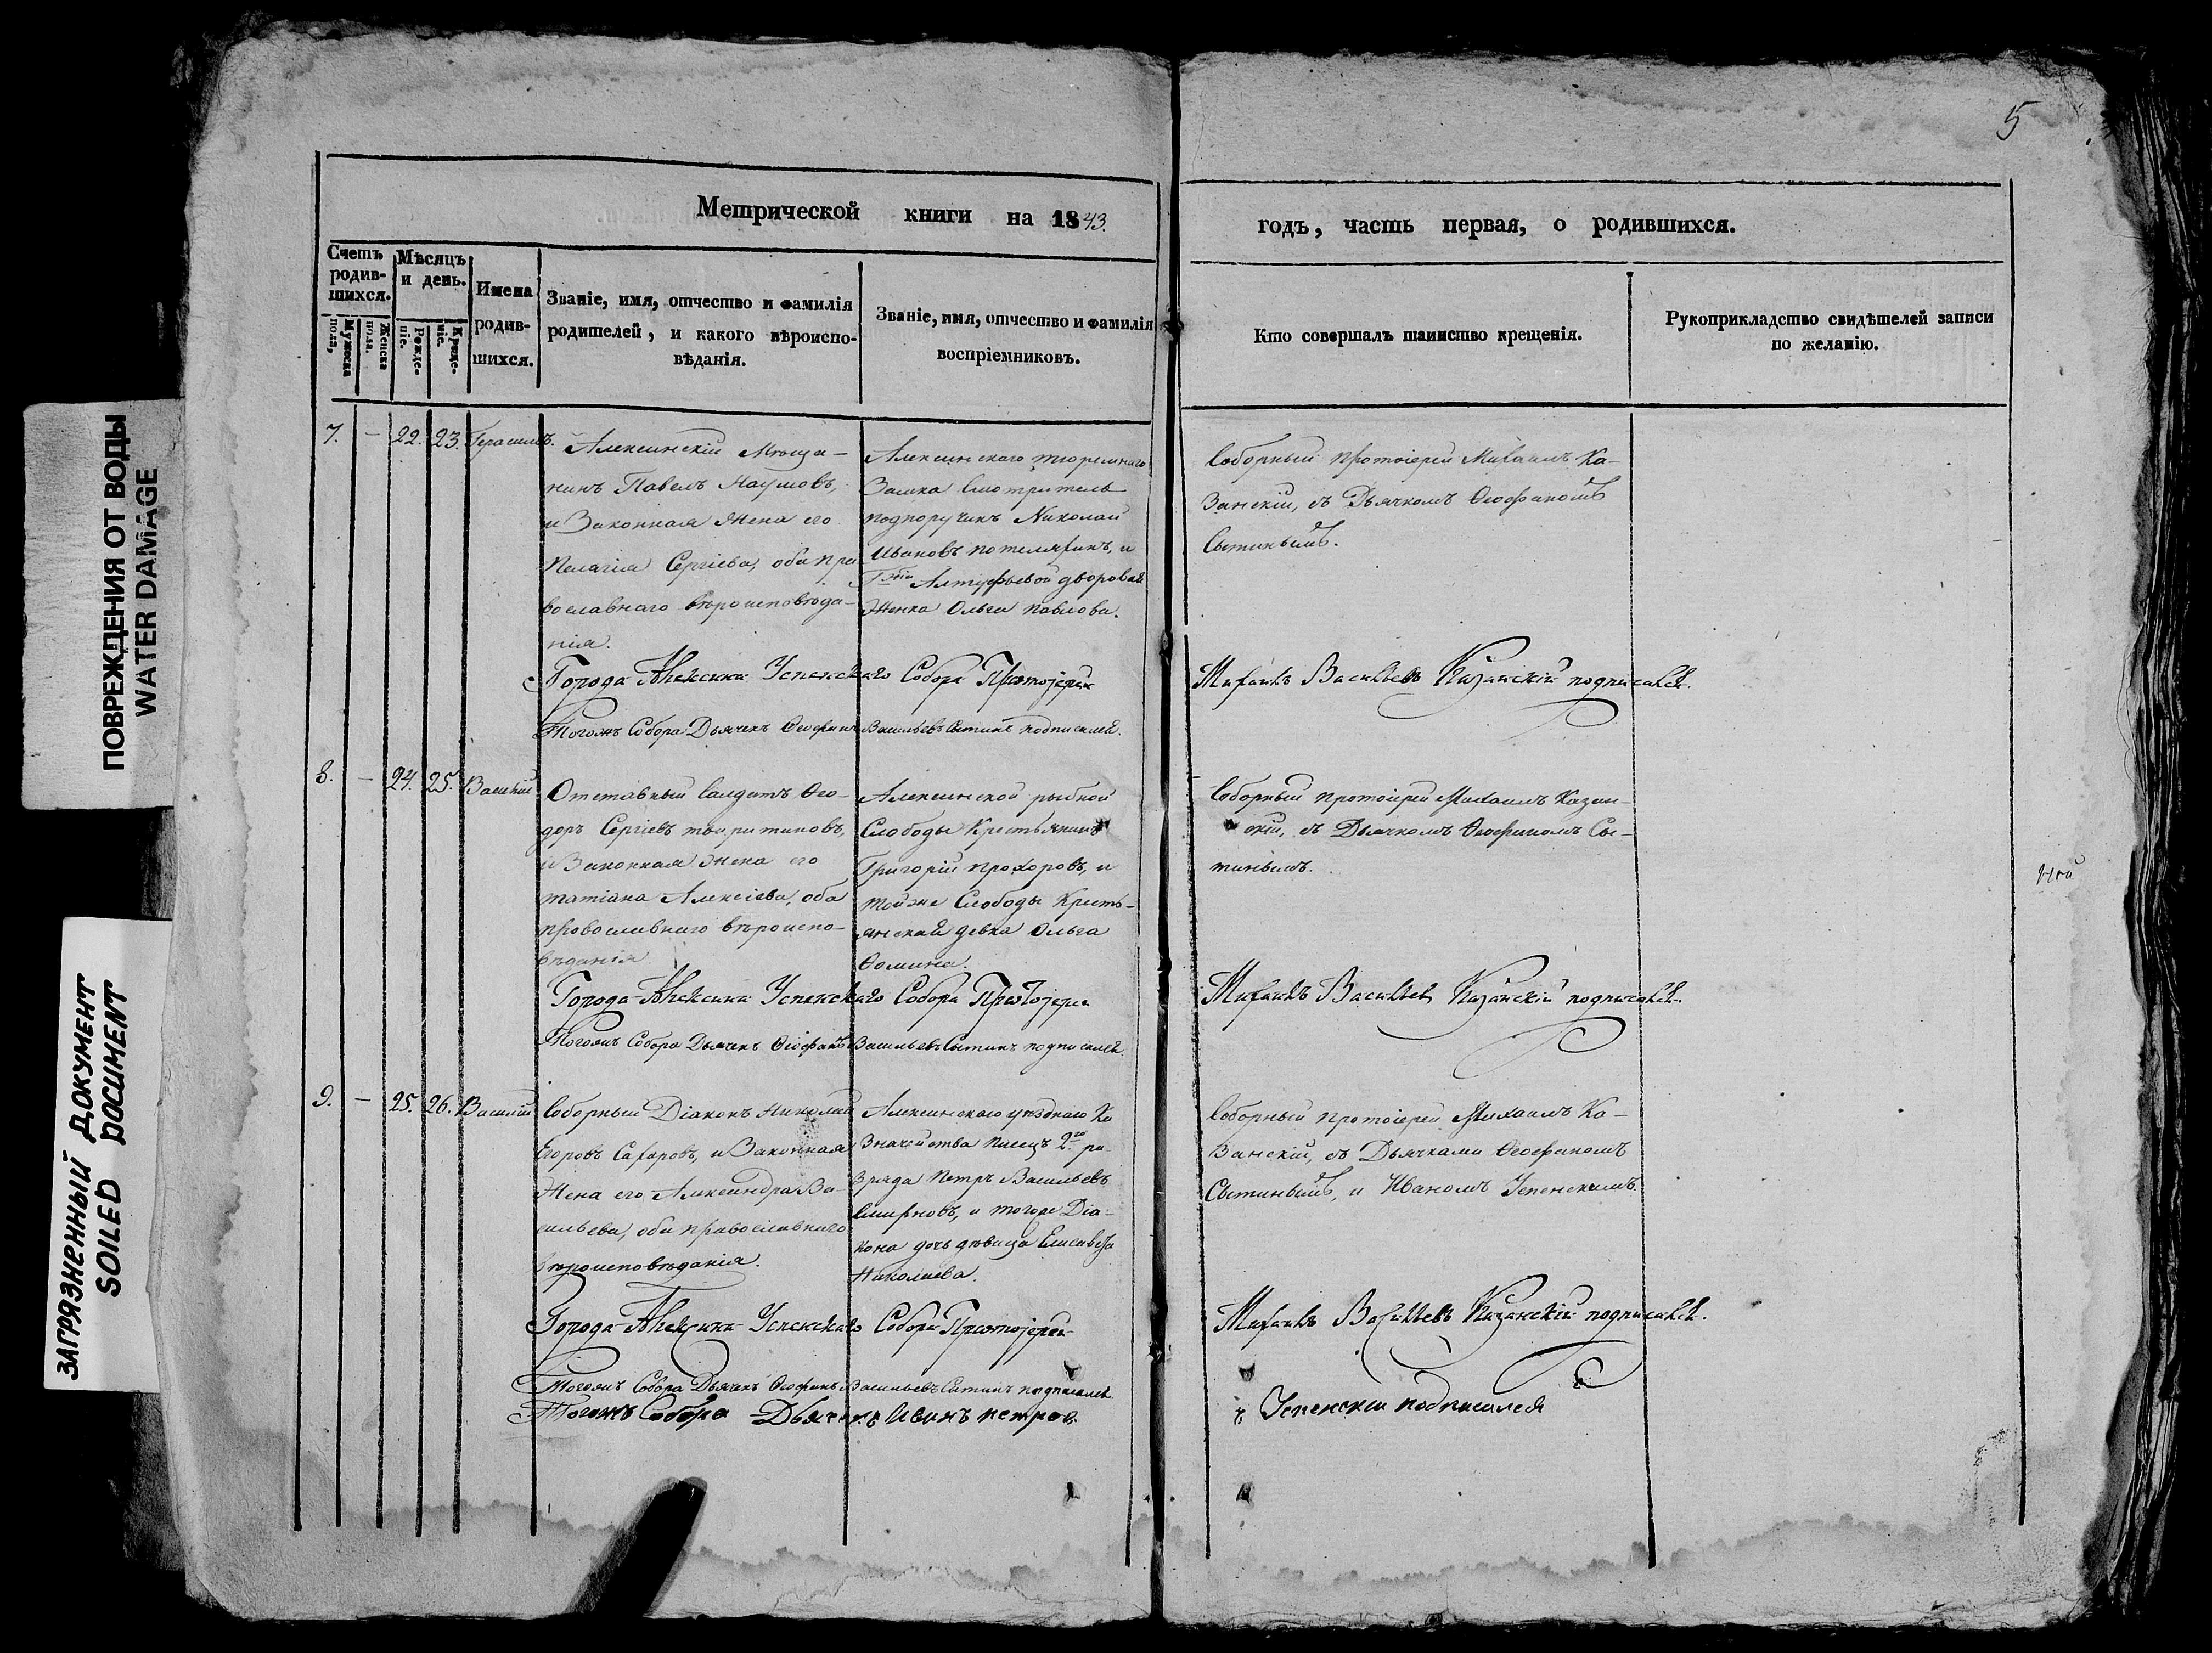 5
Метрической книги на 1843.
годъ, часть первая, о родившихся.
Счетъ родив-шихся.
Мужеска пола,
Женска пола.
Мѣсяцъ и день.
Рожде-ніе.
Креще-ніе.
Имена родив-шихся.
Званіе, имя, отчество и фамилія
родителей, и какого вѣроиспо-
вѣданія.
Званіе, имя, отчество и фамилія
воспріемниковъ.
Кто совершалъ таинство крещенія.
Рукоприкладство свидѣтелей записи
по желанію.
7. — 22. 23. Герасимъ.
Алексинскій Мѣща-
нинъ Павелъ Наумовъ,
и Законная Жена его
Пелагія Сергіева, оба пра
вославнаго вѣроисповѣда-
нія.
Алексинскаго тюремнаго
Замка Смотритель
подпоручикъ Николай
Ивановъ и
Алтуфьевой дворовая
Женка Ольга Павлова.
Соборный протоіерей Михаилъ Ка-
занскій, съ Дьячкомъ Ѳеофаномъ
Сытинымъ.
Города Алексина Успенскаго Собора Протоіерей Михаилъ Васильевъ Казанскій подписался.
Тогожъ Собора Дьячекъ Ѳеофанъ Васильевъ Сытинъ подписался.
8. — 24. 25. Василій
Отставный Салдатъ Ѳео-
доръ Сергіевъ
и Законная Жена его
Татіана Алексіева, оба
православнаго вѣроиспо-
вѣданія
Алексинской рыбной
Слободы Крестьянинъ
Григорій Прохоровъ, и
тойже Слободы Кресть-
янская девка Ольга
Ѳомина.
Соборный протоіерей Михаилъ Казан-
скій, съ Дьячкомъ Ѳеофаномъ Сы-
тинымъ.
Города Алексина Успенскаго Собора Протоіерей Михаилъ Васильевъ Казанскій подписался.
Тогожъ Собора Дьячекъ Ѳеофанъ Васильевъ Сытинъ подписался.
9. — 25. 26. Василій
Соборный Діаконъ Николай
Егоровъ Сахаровъ, и Законная
Жена его Александра Ва-
сильева, оба православнаго
вѣроисповѣданія.
Алексинскаго уѣзднаго Ка
значейства писецъ 2го ра-
зряда Петръ Васильевъ
Смирновъ, и тогоже Діа-
кона дочь дѣвица Елисавета
Николаева.
Соборный протоіерей Михаилъ Ка-
занскій, съ Дьячками Ѳеофаномъ
Сытинымъ, и Иваномъ Успенскимъ.
Города Алексина Успенскаго Собора Протоіерей Михаилъ Васильевъ Казанскій подписался.
Тогожъ Собора Дьячекъ Ѳеофанъ Васильевъ Сытинъ подписался.
Тогожъ Собора Дьячекъ Иванъ Петровъ Успенскій подписался
ПОВРЕЖДЕНИЯ ОТ ВОДЫ
WATER DAMAGE
ЗАГРЯЗНЕННЫЙ ДОКУМЕНТ
SOILED DOCUMENT